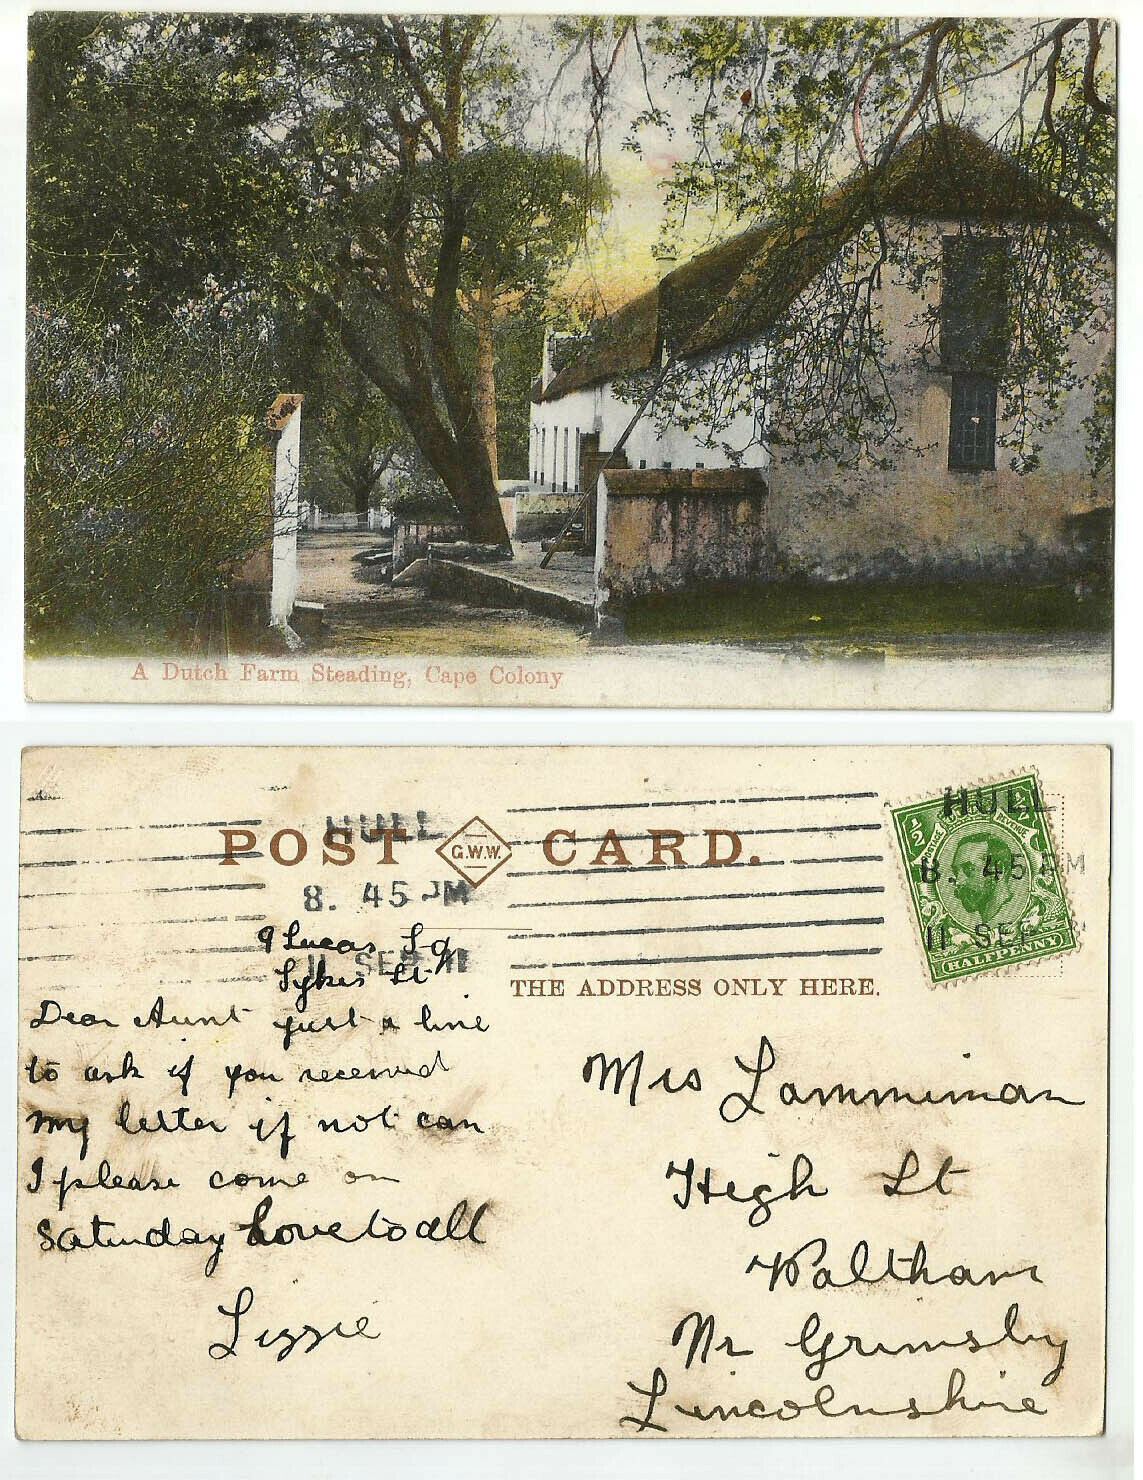 A Dutch Farm Steading, Cape Colony
POST G.W.W. CARD.
HULL
8. 45 PM
11 SEP 11
HULL
8. 45 PM
11 SEP
½
½
POSTAGE
REVENUE
HALFPENNY
THE ADDRESS ONLY HERE.
9 Lucas Sq
Sykes St
Dear Aunt just a line
to ask if you received
my letter if not can
I please come on
Saturday Love to all
Lizzie
Mrs Lammiman
High St
Waltham
Nr Grimsby
Lincolnshire